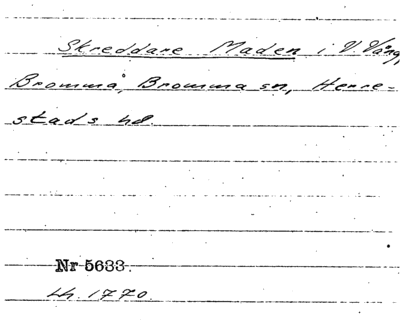 Skreddare Maden i V. Vång,
Bromma, Bromma sn, Herre-
stads hd.
Nr 5633.
Lh. 1770.